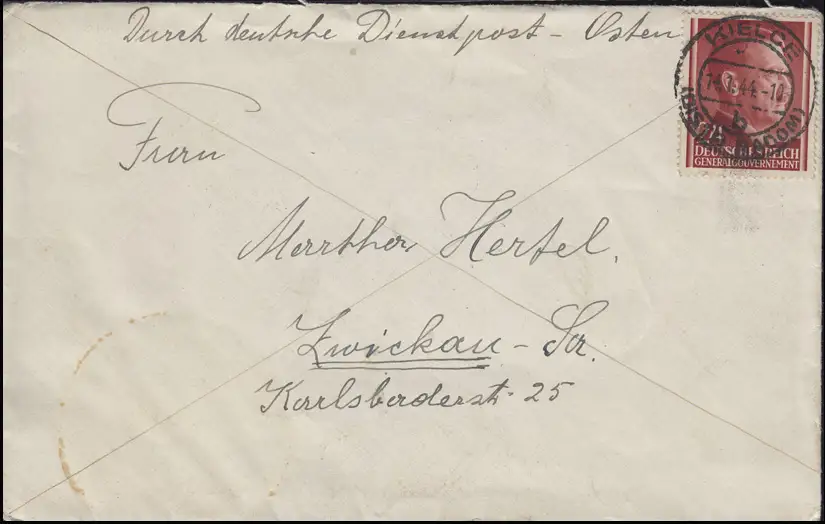 Durch deutsche Dienstpost - Osten
KIELCE
1.44.-10
b
(DISTR. RADOM)
DEUTSCHES REICH
GENERALGOUVERNEMENT
Frau
Martha Hertel.
Zwickau - Sa.
Karlsbaderstr. 25